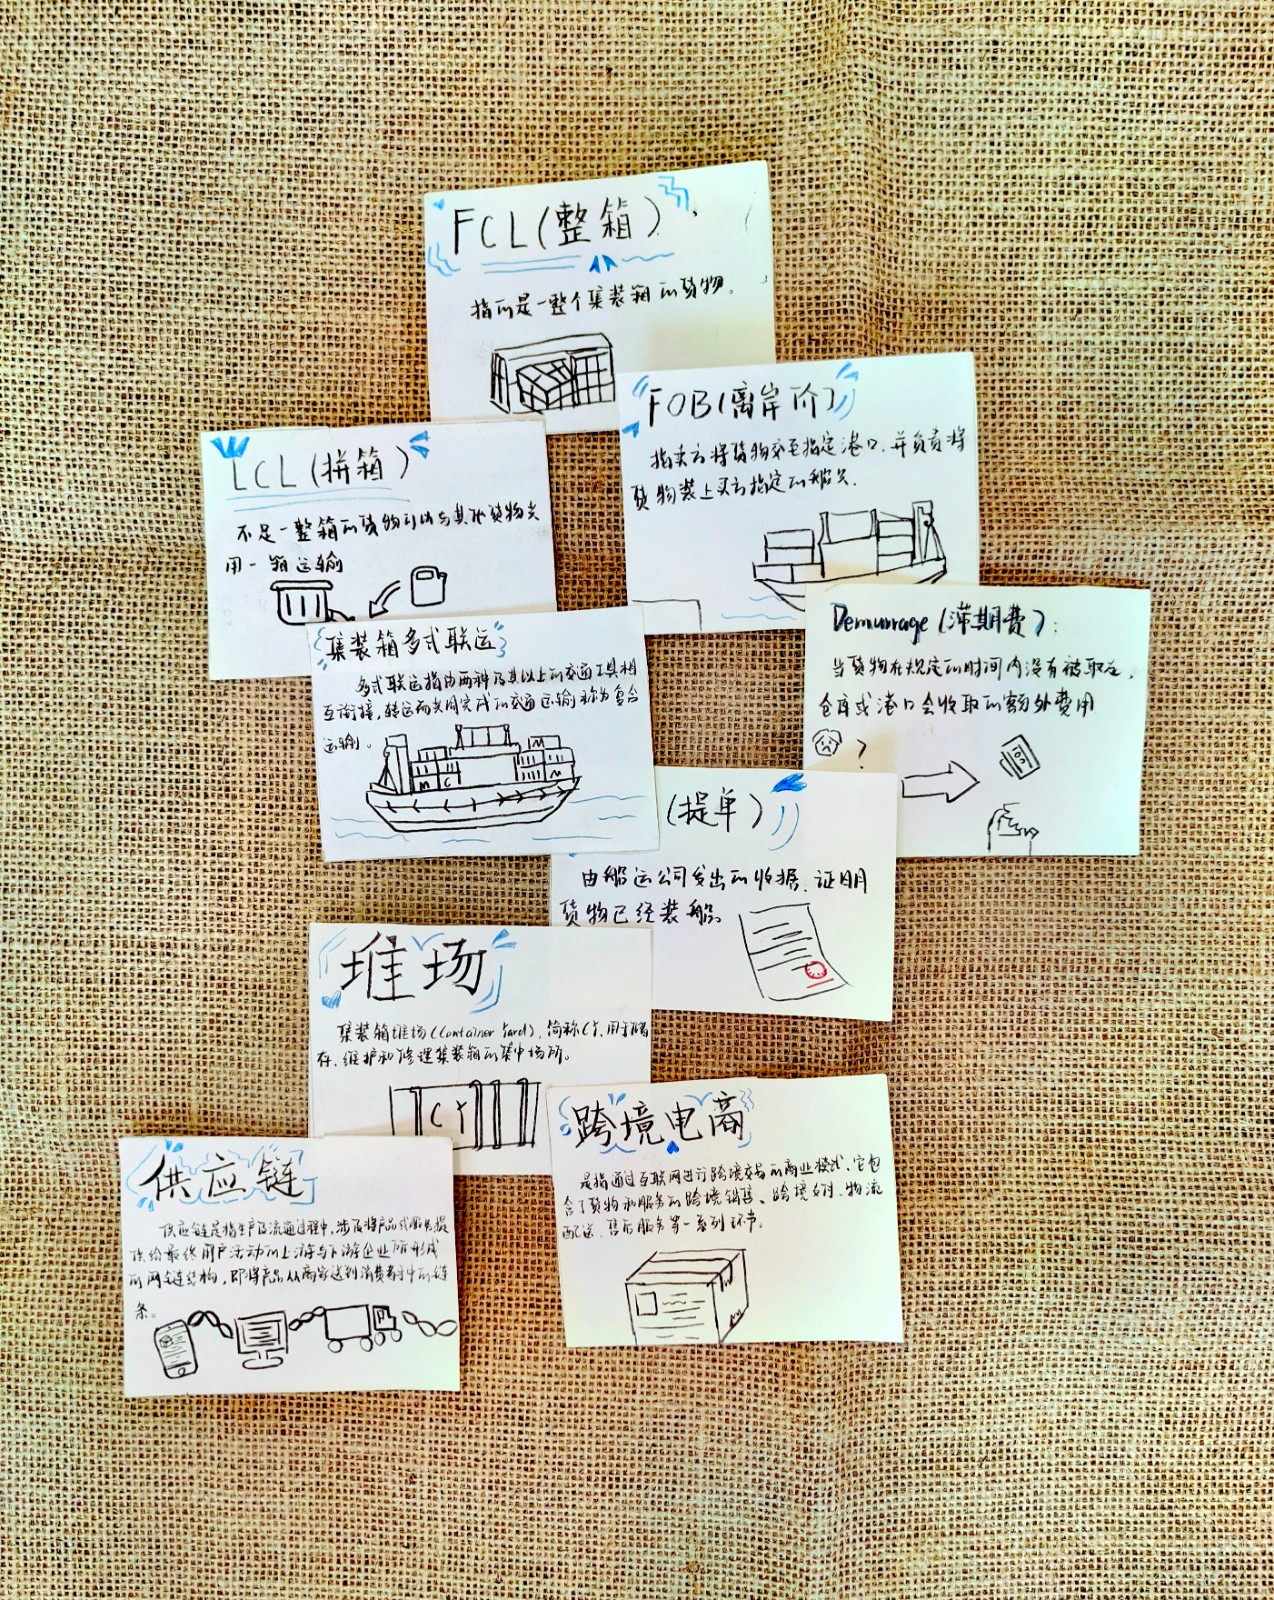 FCL(整箱)
指的是一整个集装箱的货物。
FOB(离岸价)
指卖方将货物交至指定港口,并负责将
货物装上买方指定的船只.
LCL(拼箱)
不足一整箱的货物可以与其他货物共
用一箱运输
Demurrage(滞期费):
当货物在规定的时间内没有被取走,
仓库或港口会收取的额外费用
?
集装箱多式联运
多式联运指由两种及其以上的交通工具相
互衔接,转运而共同完成的交通运输称为复合
运输。
M C
M
(提单)
由船运公司发出的收据,证明
货物已经装船。
堆场
集装箱堆场(Container Yard),简称CY,用于储
存、维护和修理集装箱的集中场所。
CY
跨境电商
是指通过互联网进行跨境交易的商业模式,它包
含了货物和服务的跨境销售、跨境支付、物流
配送、售后服务等一系列环节。
供应链
供应链是指生产及流通过程中,涉及将产品或服务提
供给最终用户活动的上游与下游企业所形成
的网链结构,即将产品从商家送到消费者手中的链
条。